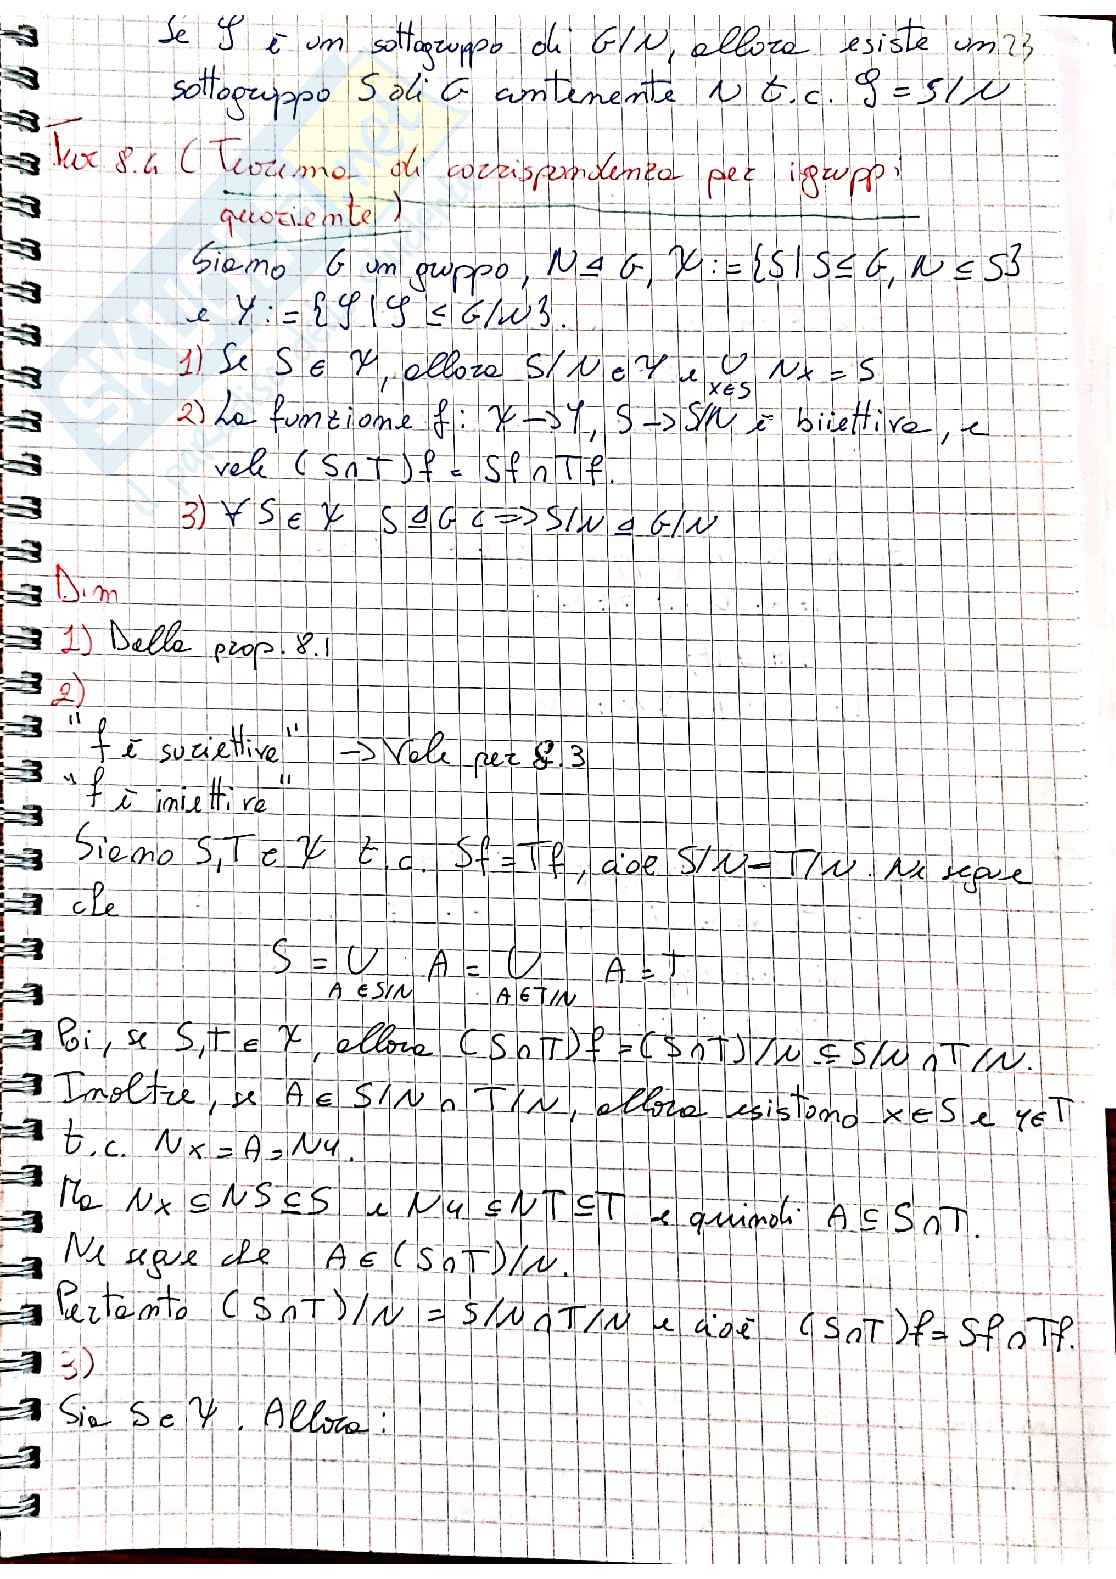 Se 𝒮 è un sottogruppo di G/N, allora esiste un 23
sottogruppo S di G contenente N t.c. 𝒮 = S/N
Teor 8.4 (Teorema di corrispondenza per i gruppi
quoziente)
Siano G un gruppo, N ⊴ G, X := {S | S ≤ G, N ≤ S}
e Y := {𝒮 | 𝒮 ≤ G/N}.
1) Se S ∈ X, allora S/N ∈ Y e ∪ Nx = S
x∈S
2) La funzione f: X → Y, S → S/N è biiettiva, e
vale (S∩T)f = Sf ∩ Tf.
3) ∀ S ∈ X S ⊴ G <=> S/N ⊴ G/N
Dim
1) Dalla prop. 8.1
2)
"f è suriettiva" → Vale per 8.3
"f è iniettiva"
Siano S,T ∈ X t.c. Sf = Tf, cioè S/N = T/N. Ne segue
che
S = ∪ A = ∪ A = T
A ∈ S/N A ∈ T/N
Poi, se S,T ∈ X, allora (S∩T)f = (S∩T)/N ⊆ S/N ∩ T/N.
Inoltre, se A ∈ S/N ∩ T/N, allora esistono x ∈ S e y ∈ T
t.c. Nx = A = Ny.
Ma Nx ⊆ NS ⊆ S e Ny ⊆ NT ⊆ T e quindi A ⊆ S∩T.
Ne segue che A ∈ (S∩T)/N.
Pertanto (S∩T)/N = S/N ∩ T/N e cioè (S∩T)f = Sf ∩ Tf.
3)
Sia S ∈ X. Allora: